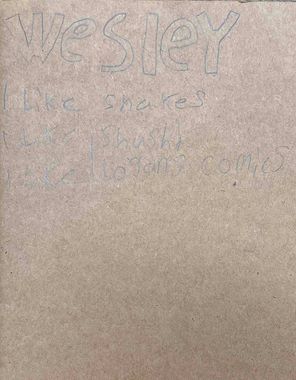 WESLEY
I like snakes
I like shushi
I like logans comics